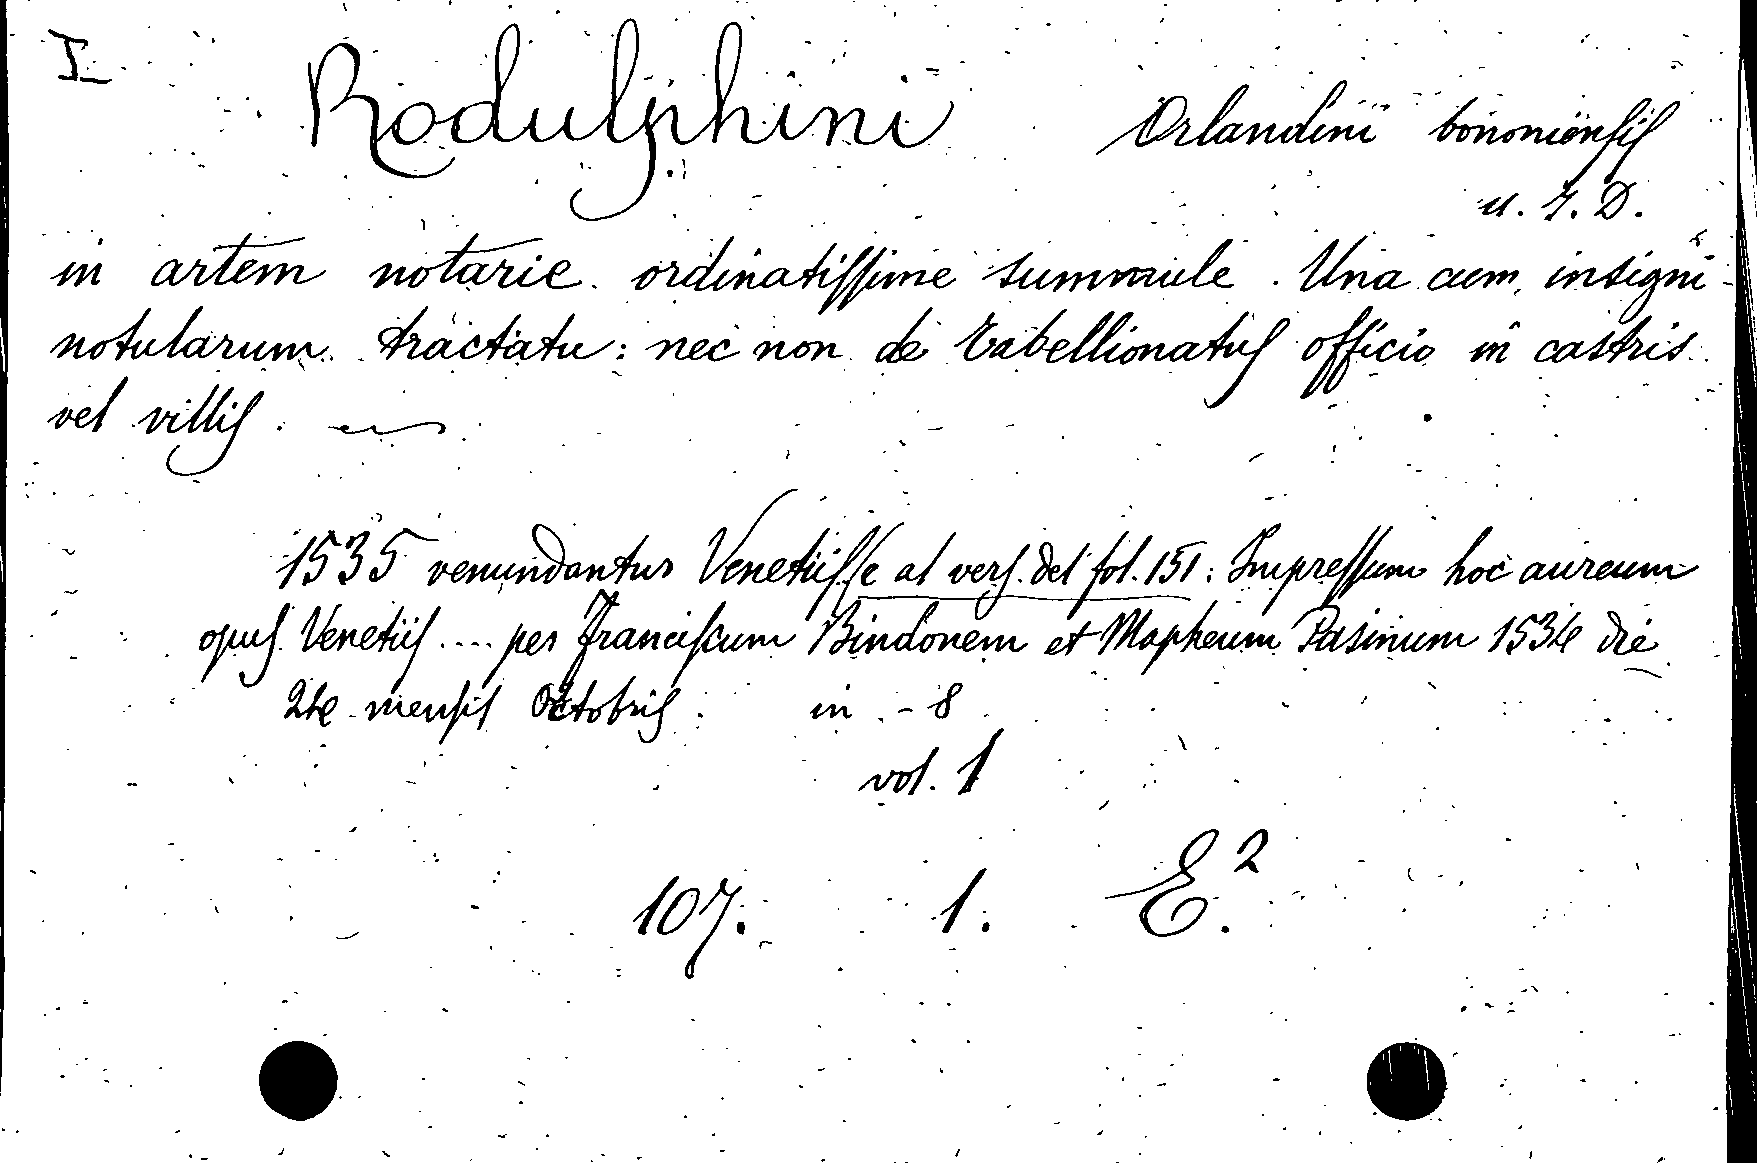 I
Rodulphini Orlandini bononiensis
u. J. D.
in artem notarie ordinatissime summule. Una cum insigni
notularum tractatu: nec non de tabellionatus officio in castris
vel villis.
1535 venundantur Venetiis (e al vers. del fol. 151: Impressum hoc aureum
opus Venetiis .... per Franciscum Bindonem et Mapheum Pasinum 1534 die
24 mensis Octobris. in - 8
vol. 1
107. 1. E.²